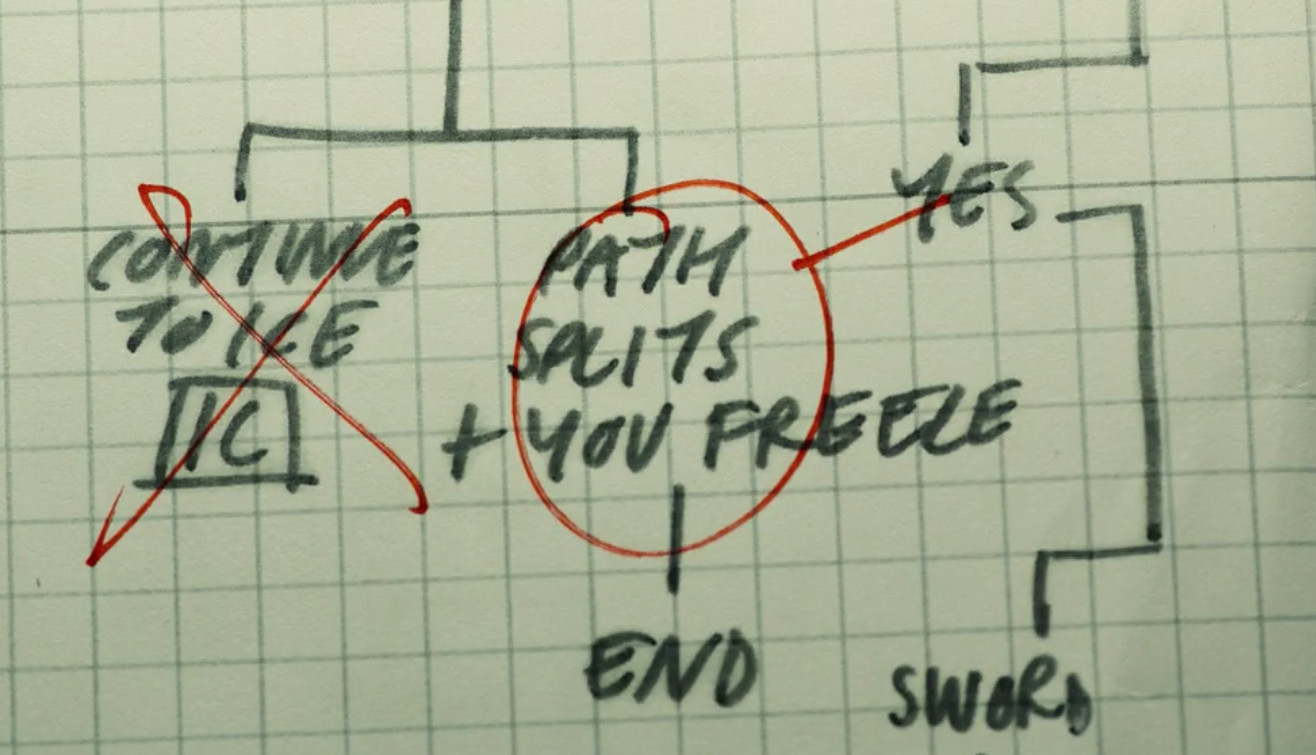 CONTINUE
TO ICE
IC
PATH
SPLITS
+ YOU FREEZE
END
YES
SWORD